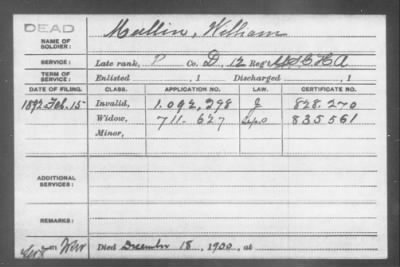 DEAD
NAME OF SOLDIER: Mullin, William
SERVICE: Late rank, P Co. D, 12 Reg't U.S.C.H.A
TERM OF SERVICE: Enlisted , 1 Discharged , 1
DATE OF FILING. CLASS. APPLICATION NO. LAW. CERTIFICATE NO.
1892 Feb. 15 Invalid, 1.092,298 J 828.270
Widow, 711.627 835561
Minor,
ADDITIONAL SERVICES:
REMARKS:
Died December 18, 1900, at